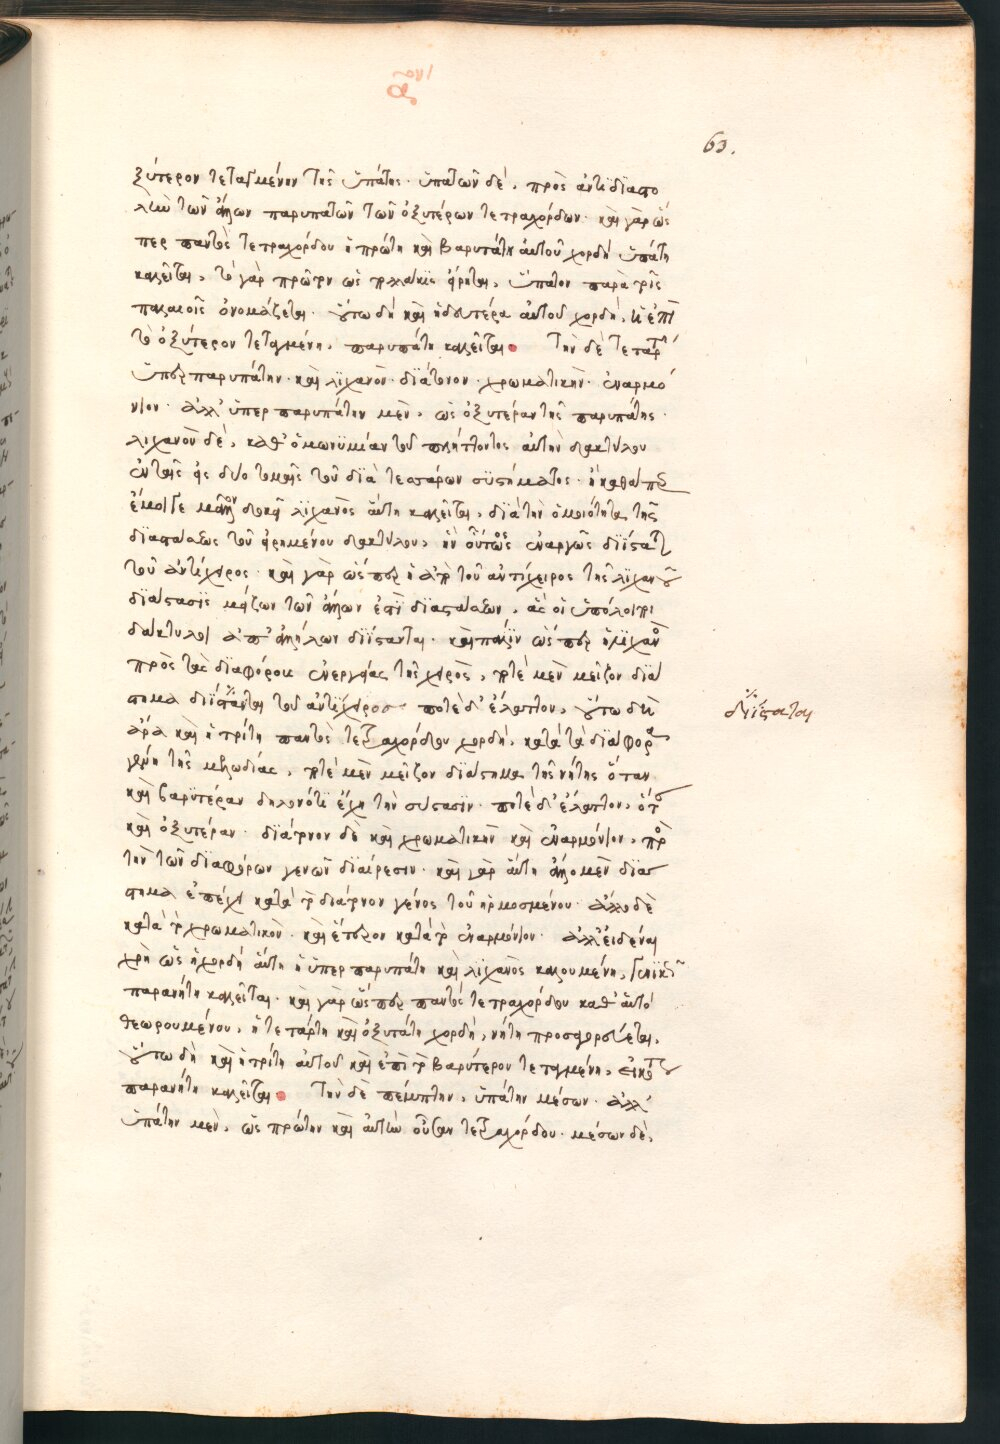 63.
ξύτερον τεταγμένην τῆς ὑπάτης· ὑπατῶν δὲ, πρὸς ἀντιδιαστο
λὴν τῶν ἄλλων παρυπατῶν τῶν ὀξυτέρων τετραχόρδων· καὶ γὰρ ὥς
περ παντὸς τετραχόρδου ἡ πρώτη καὶ βαρυτάτη αὐτοῦ χορδὴ ὑπάτη
καλεῖται, τὸ γὰρ πρῶτον ὡς πολλάκις εἴρηται, ὕπατον παρὰ τοῖς
παλαιοῖς ὀνομάζεται· οὕτω δὴ καὶ ἡ δευτέρα αὐτοῦ χορδὴ, ἡ ἐπὶ
τὸ ὀξύτερον τεταγμένη, παρυπάτη καλεῖται· Τὴν δὲ τετάρτ
ὑπερπαρυπάτην· καὶ λιχανὸν· διάτονον· χρωματικὴν· ἐναρμό
νιον· ἀλλ' ὑπερπαρυπάτην μὲν, ὡς ὀξυτέραν τῆς παρυπάτης·
λιχανὸν δὲ, καθ' ὁμωνυμίαν τοῦ πλήττοντος αὐτὴν δακτύλου
ἐν ταῖς εἰς δύο τομαῖς τοῦ διὰ τεσσάρων συστήματος· ἢ καθάπερ
ἔμοιγε μᾶλλον δοκεῖ λιχανὸς αὕτη καλεῖται, διὰ τὴν ὁμοιότητα τῆς
διαστάσεως τοῦ εἰρημένου δακτύλου, ἣν οὗτος ἐναργῶς διΐσταται
τοῦ ἀντίχειρος· καὶ γὰρ ὥσπερ ἡ ἀπὸ τοῦ ἀντίχειρος τῆς λιχανοῦ
διάστασις μείζων τῶν ἄλλων ἐστὶ διαστάσεων, ἃς οἱ ὑπόλοιποι
δάκτυλοι ἀπ' ἀλλήλων διΐστανται· καὶ πάλιν ὥσπερ ἡ λιχανὸς
πρὸς τὰς διαφόρους ἐνεργείας τῆς χειρὸς, ποτὲ μὲν μεῖζον διά
στημα διΐσταται τοῦ ἀντίχειρος ποτὲ δ' ἔλαττον, οὕτω δὴ
ἄρα καὶ ἡ τρίτη παντὸς τετραχόρδου χορδὴ, κατὰ τὰ διάφορα
γένη τῆς μελωδίας, ποτὲ μὲν μεῖζον διάστημα τῆς νήτης ὅταν
καὶ βαρυτέραν δηλονότι ἔχῃ τὴν σύστασιν· ποτὲ δ' ἔλαττον, ὅτε
καὶ ὀξυτέραν· διάτονον δὲ καὶ χρωματικὴν καὶ ἐναρμόνιον, πρὸς
τὴν τῶν διαφόρων γενῶν διαίρεσιν· καὶ γὰρ αὕτη ἄλλο μὲν διά
στημα ἐπέχει κατὰ τὸ διάτονον γένος τοῦ ἡρμοσμένου· ἄλλο δὲ
κατὰ τὸ χρωματικὸν· καὶ ἕτερον κατὰ τὸ ἐναρμόνιον· ἀλλ' εἰδέναι
χρὴ ὡς ἡ χορδὴ αὕτη ἡ ὑπερπαρυπάτη καὶ λιχανὸς καλουμένη,
παρανήτη καλεῖται· καὶ γὰρ ὥσπερ παντὸς τετραχόρδου καθ' αὑτὸ
θεωρουμένου, ἡ τετάρτη καὶ ὀξυτάτη χορδὴ, νήτη προσαγορεύεται,
οὕτω δὴ καὶ ἡ τρίτη αὐτοῦ καὶ ἐπὶ τὸ βαρύτερον τεταγμένη, εἰκότως
παρανήτη καλεῖται· Τὴν δὲ πέμπτην, ὑπάτην μέσων· ἀλλ'
ὑπάτην μὲν, ὡς πρώτην καὶ αὐτὴν οὖσαν τετραχόρδου· μέσων δὲ,
διΐσταται